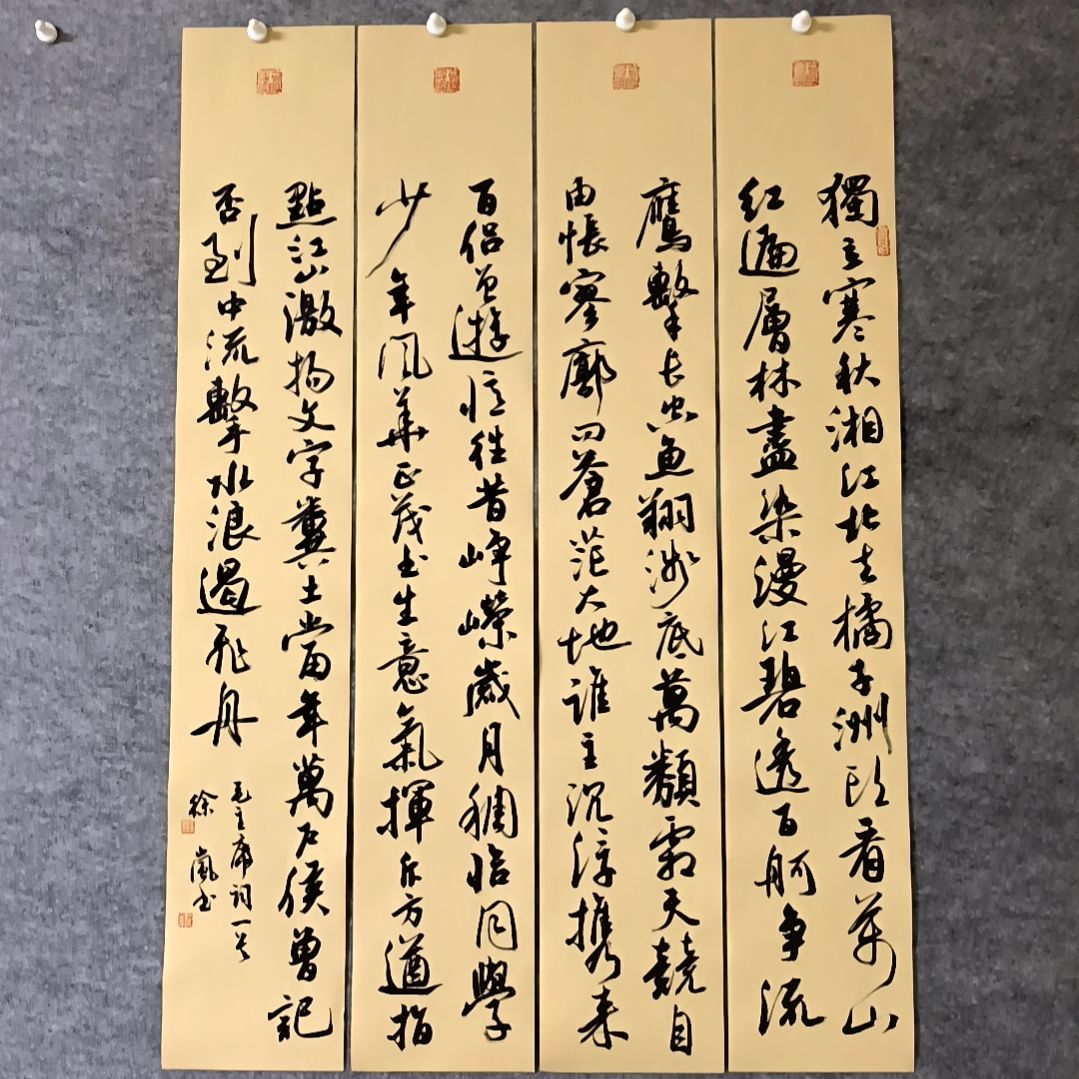 獨立寒秋湘江北去橘子洲头看万山
红遍層林盡染漫江碧透百舸争流
鷹擊长空鱼翔浅底萬類霜天競自
由悵寥廓问蒼茫大地谁主沉浮携来
百侣曾遊忆往昔崢嶸歲月稠恰同學
少年风華正茂书生意氣揮斥方遒指
點江山激扬文字糞土當年萬户侯曾記
否到中流擊水浪遏飛舟
毛主席词一首
徐嵐书